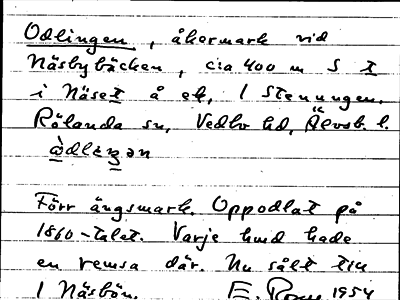 Odlingen, åkermark vid
Näsbybäcken, c:a 400 m S
i Näset å ek, 1 Stenungen.
Rölanda sn, Vedbo hd, Älvsb. l.
Förr ängsmark. Oppodlat på
1860-talet. Varje hmd hade
en remsa där. Nu sålt till
1 Näsbön. 1954